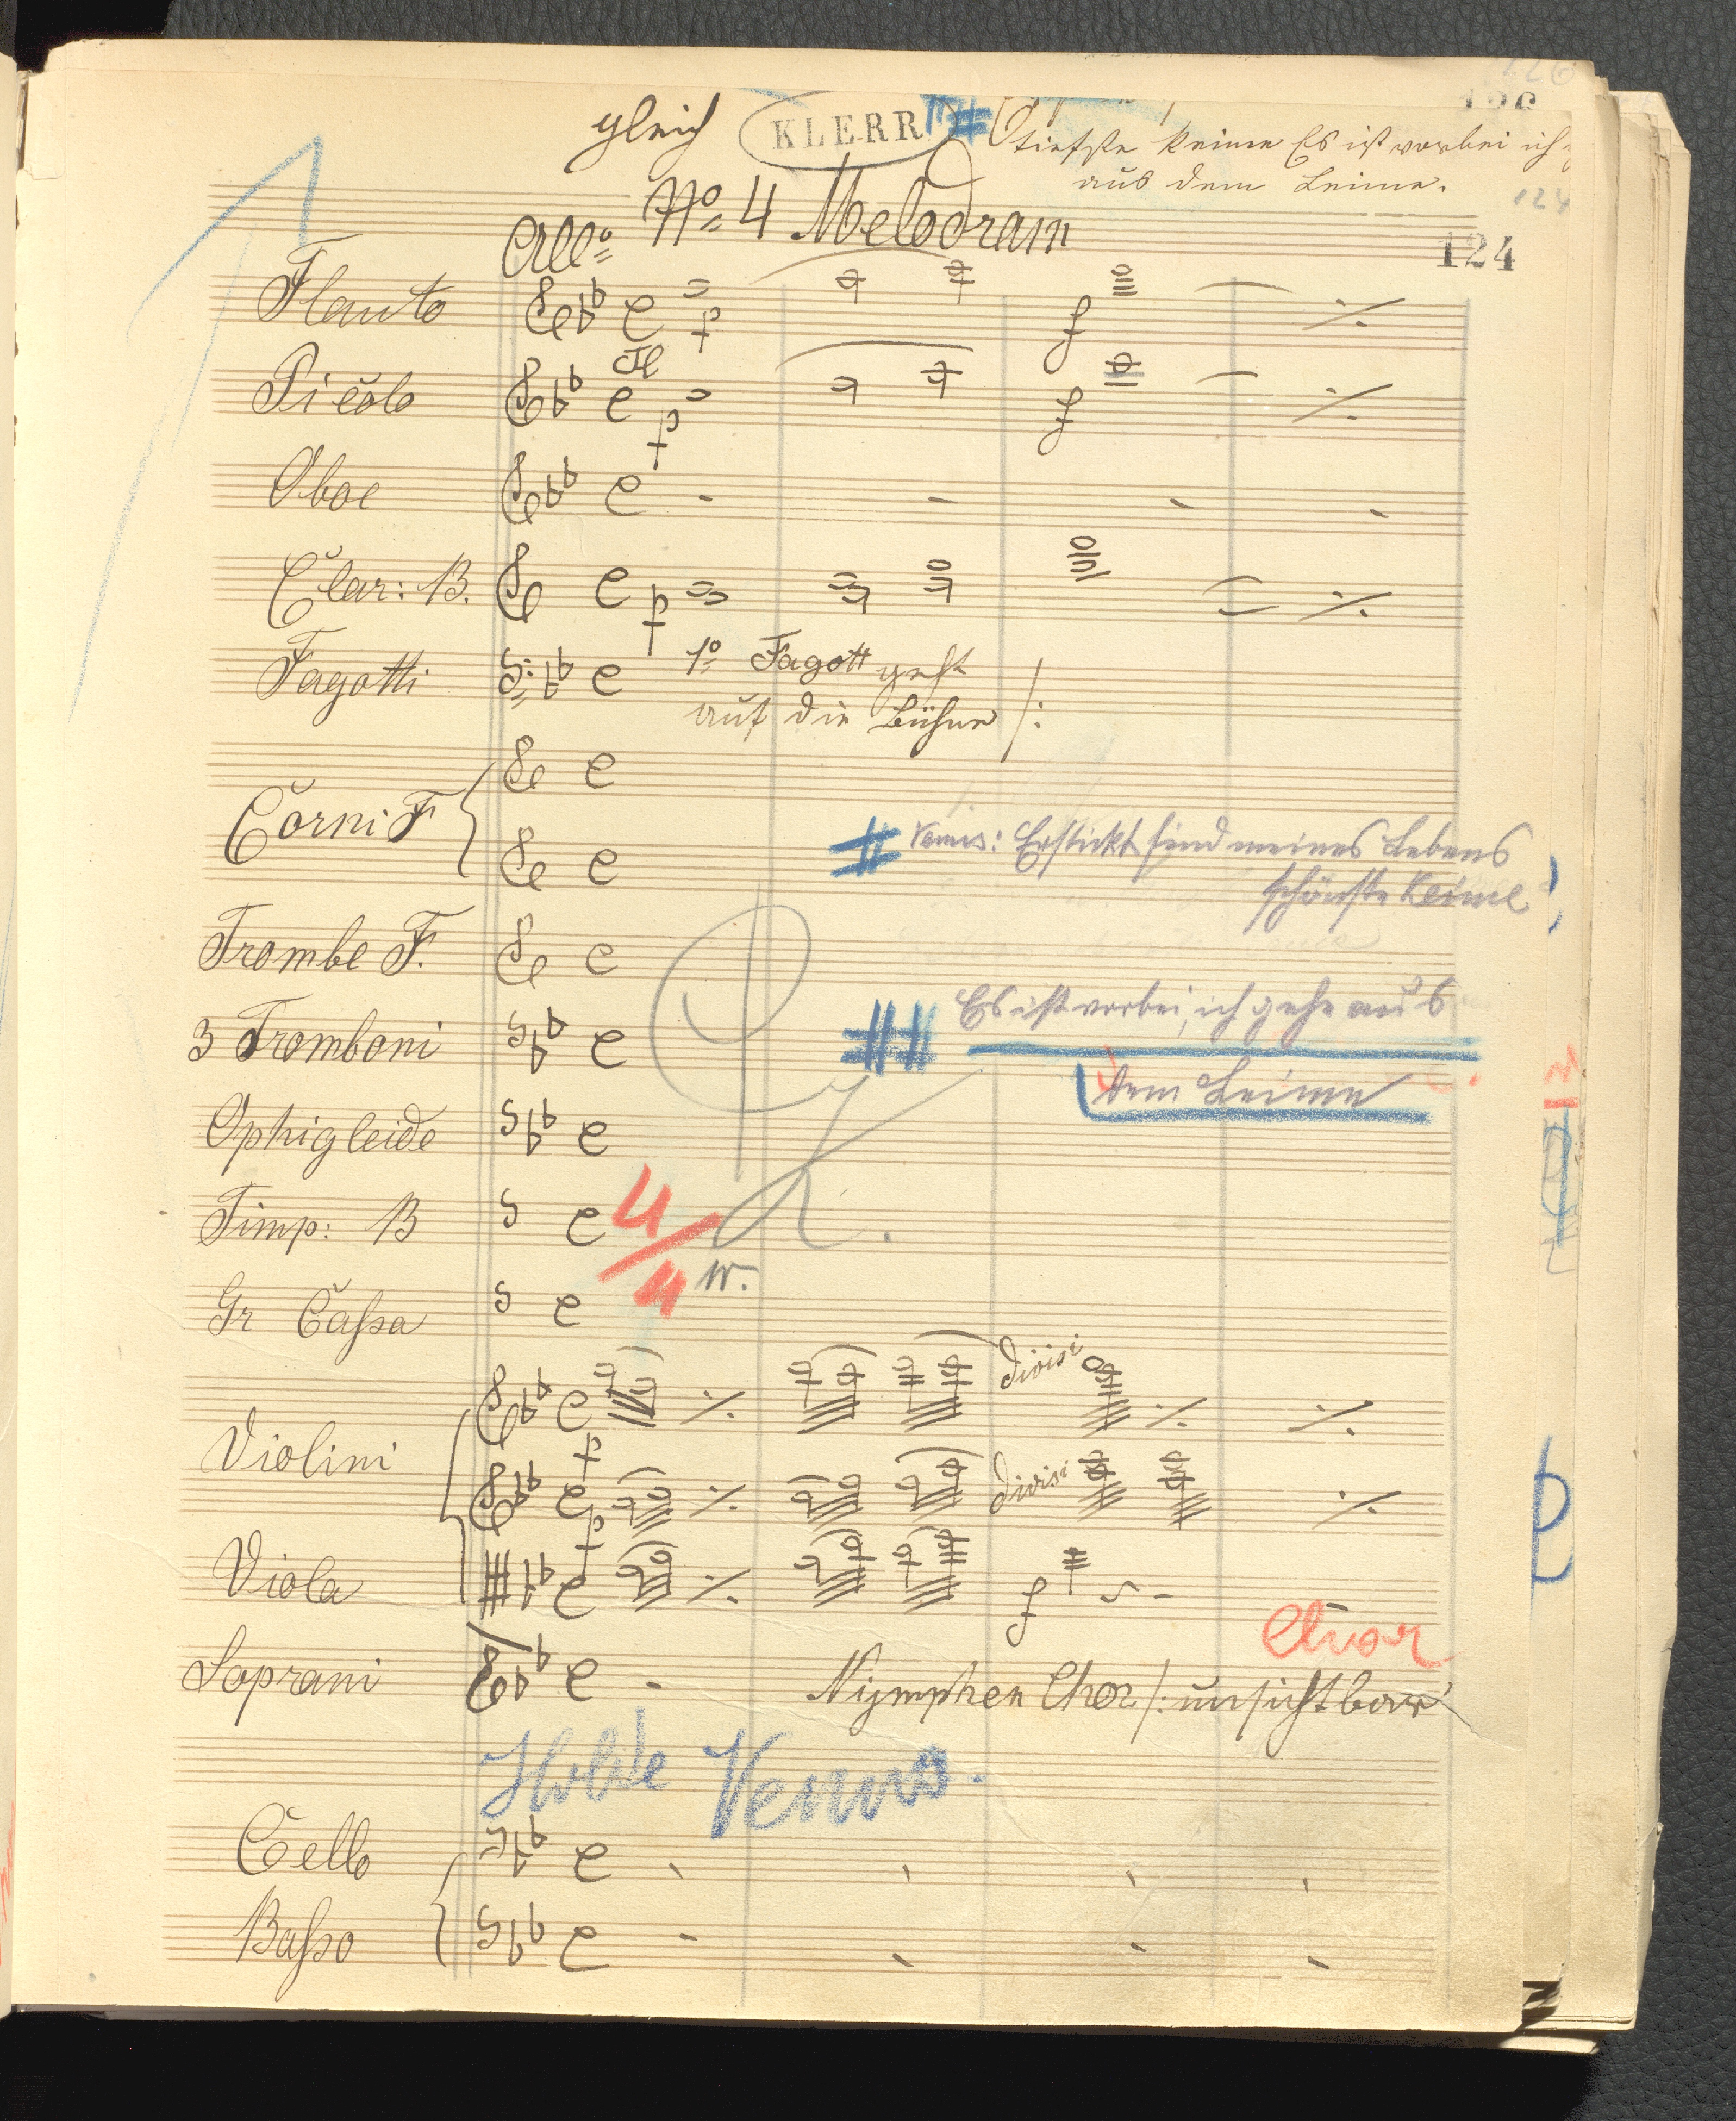 126
gleich KLERR
tiefste Keime Es ist vorbei ich
aus dem Leime.
124
No 4 Melodram
124
Allo
Flauto
p
f
Picolo
p
f
Oboe
Clar: B.
p
Fagotti
1o Fagott geht
auf die Bühne /:
Corni F
# Venus: Erstickt sind meines Lebens
schönste Keime
Trombe F.
Es ist vorbei, ich gehe aus
3 Tromboni
dem Leime
Ophigleide
Timp: B
4/4
Gr Cassa
divisi
Violini
p
divisi
p
Viola
f
Chor
Soprani
Nÿmphen Chor /: unsichtbar
Holde Venus.
Cello
Basso